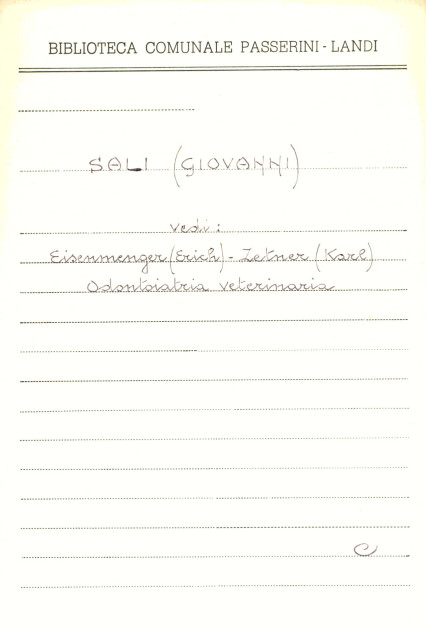 BIBLIOTECA COMUNALE PASSERINI-LANDI
SALI (GIOVANNI)
vedi:
Eisenmenger (Erich) - Zetner (Karl)
Odontoiatria veterinaria
C